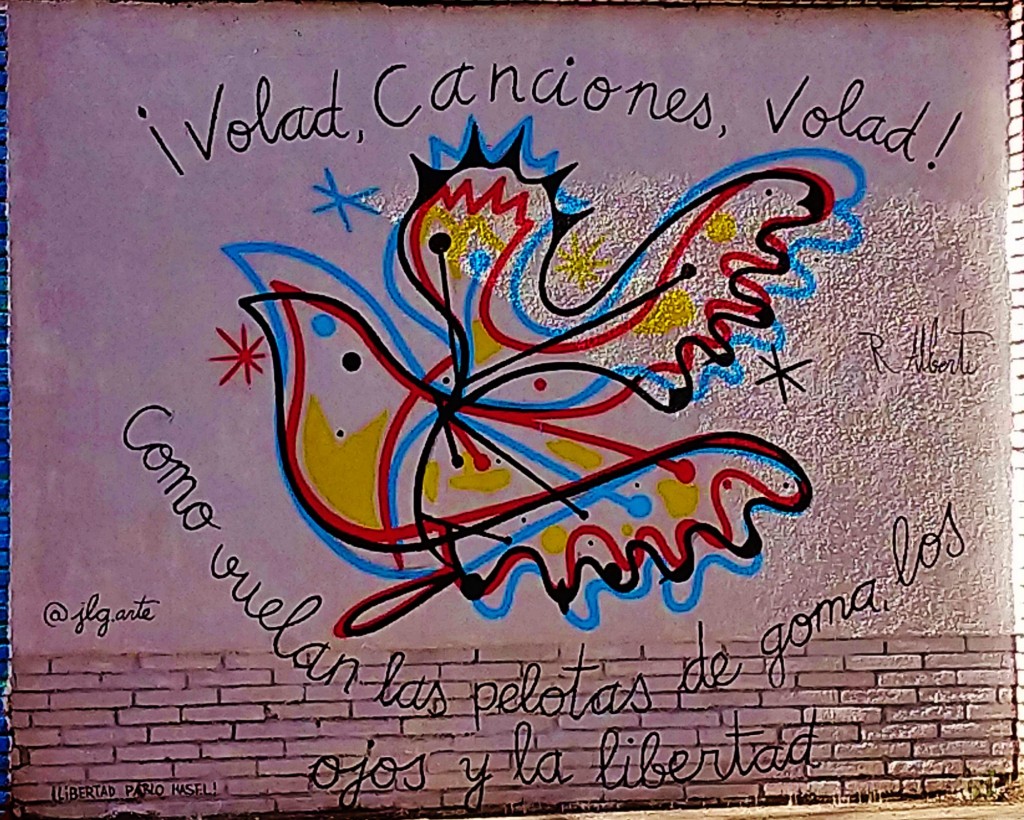 ¡Volad, Canciones, Volad!
R Alberti
Como vuelan las pelotas de goma, los
ojos y la libertad
@jlg.arte
¡LIBERTAD PABLO HASEL!